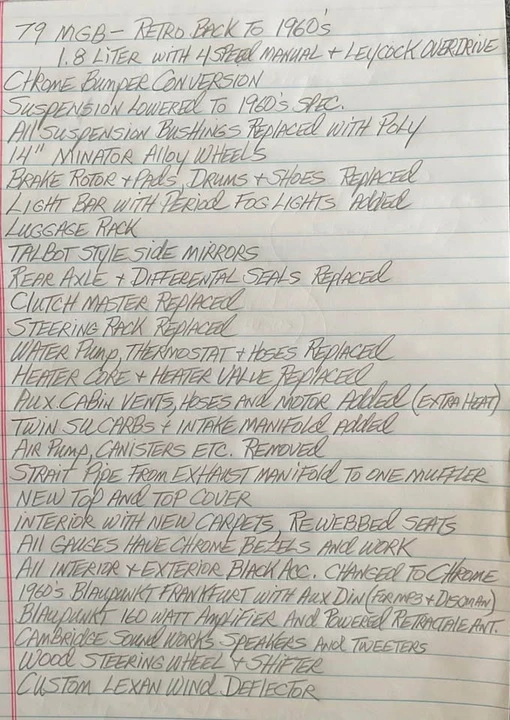 79 MGB - RETRO BACK TO 1960's
1.8 LITER WITH 4 SPEED MANUAL + LEYCOCK OVERDRIVE
CHROME BUMPER CONVERSION
SUSPENSION LOWERED TO 1960's SPEC.
All SUSPENSION BUSHINGS REPLACED WITH POLY
14" MINATOR Alloy WHEELS
BRAKE ROTOR + PADS, DRUMS + SHOES REPLACED
LIGHT BAR WITH PERIOD FOG LIGHTS ADDED
LUGGAGE RACK
TALBOT STYLE SIDE MIRRORS
REAR AXLE + DIFFERENTIAL SEALS REPLACED
CLUTCH MASTER REPLACED
STEERING RACK REPLACED
WATER PUMP, THERMOSTAT + HOSES REPLACED
HEATER CORE + HEATER VALVE REPLACED
AUX. CABIN VENTS, HOSES AND MOTOR ADDED (EXTRA HEAT)
TWIN SU CARBS + INTAKE MANIFOLD ADDED
AIR PUMP, CANISTERS ETC. REMOVED
STRAIT PIPE FROM EXHAUST MANIFOLD TO ONE MUFFLER
NEW TOP AND TOP COVER
INTERIOR WITH NEW CARPETS, REWEBBED SEATS
All GAUGES HAVE CHROME BEZELS AND WORK
All INTERIOR + EXTERIOR BLACK ACC. CHANGED TO CHROME
1960's BLAUPUNKT FRANKFURT WITH AUX DIN (FOR MP3 + DISCMAN)
BLAUPUNKT 160 WATT AMPLIFIER AND POWERED RETRACTALE ANT.
CAMBRIDGE SOUND WORKS SPEAKERS AND TWEETERS
WOOD STEERING WHEEL + SHIFTER
CUSTOM LEXAN WIND DEFLECTOR